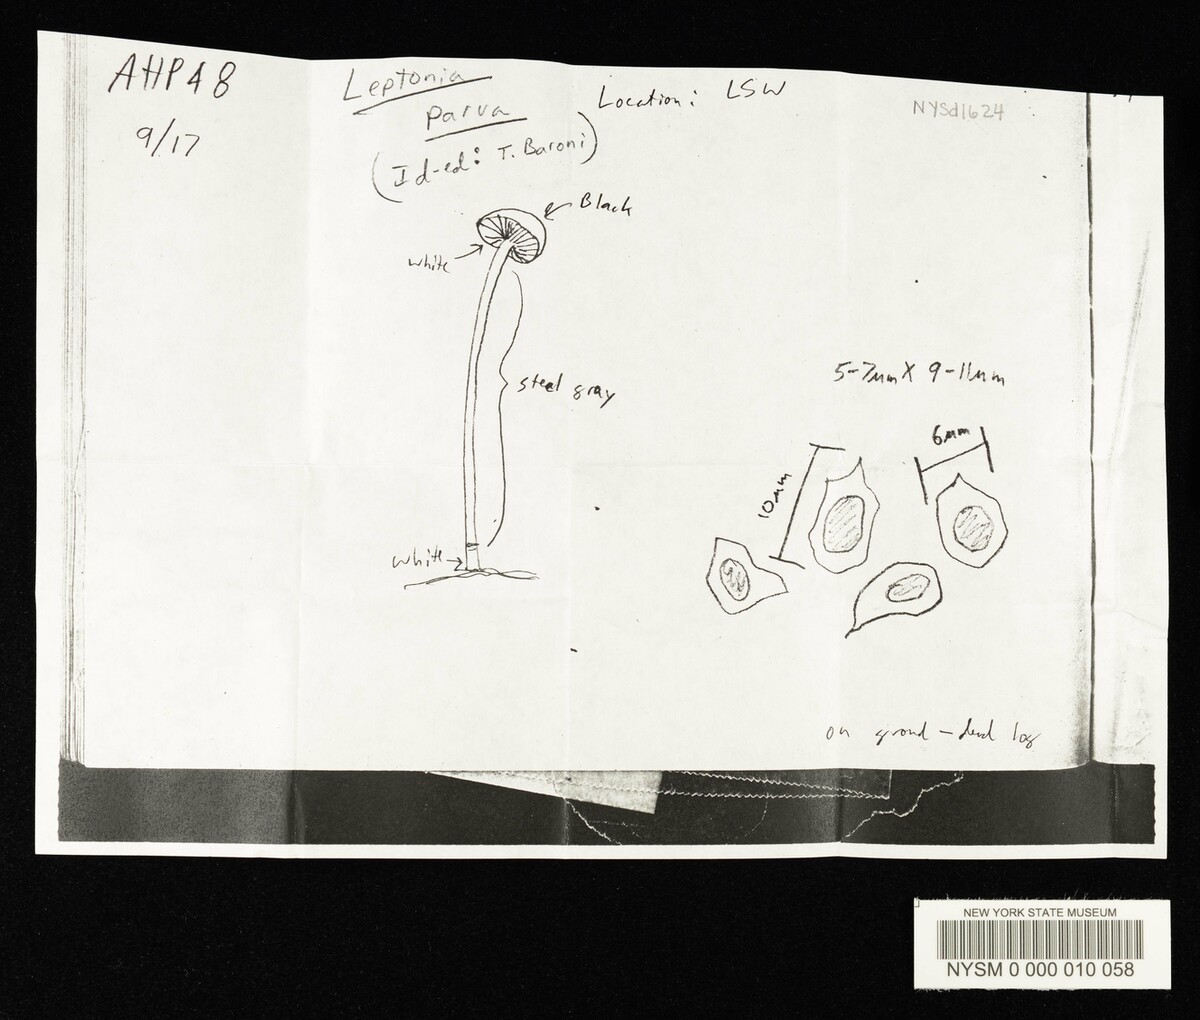 AHP48
9/17
Leptonia
parva
(Id-ed: T. Baroni)
Location: LSW
NYSd1624
Black
white
steel gray
white
5-7µm X 9-11µm
10µm
6µm
on ground - dead log
NEW YORK STATE MUSEUM
NYSM 0 000 010 058